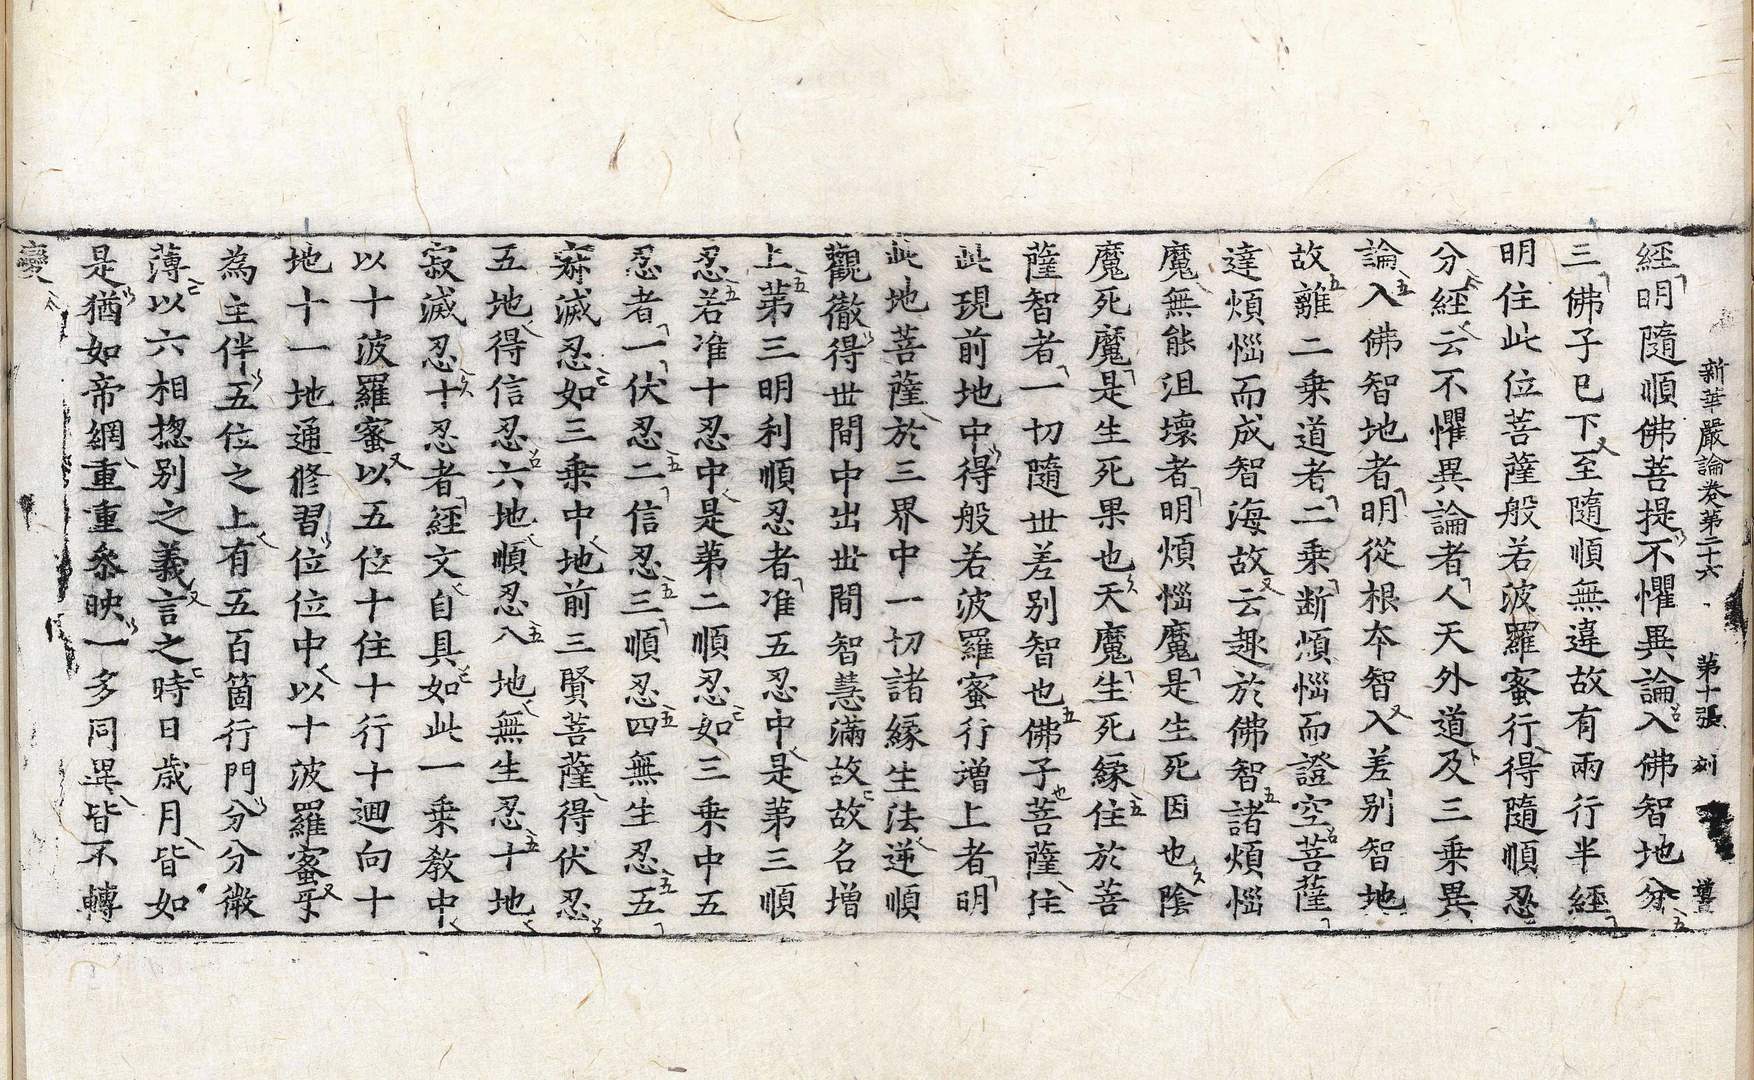 新華嚴論卷第二十六　第十張
經明隨順佛菩提不懼異論入佛智地分
三佛子已下至隨順無違故有兩行半經
明住此位菩薩般若波羅蜜行得隨順忍
分經云不懼異論者人天外道及三乗異
論入佛智地者明從根夲智入差別智地
故離二乗道者二乗断煩惱而證空菩薩
達煩惱而成智海故云趣於佛智諸煩惱
魔無能沮壞者明煩惱魔是生死因也陰
魔死魔是生死果也天魔生死縁住於菩
薩智者一切隨丗差別智也佛子菩薩住
此現前地中得般若波羅蜜行增上者明
此地菩薩於三界中一切諸縁生法逆順
觀徹得丗間中出丗間智慧滿故故名增
上苐三明利順忍者准五忍中是苐三順
忍若准十忍中是苐二順忍如三乗中五
忍者一伏忍二信忍三順忍四無生忍五
寂滅忍如三乗中地前三賢菩薩得伏忍
五地得信忍六地順忍八地無生忍十地
寂滅忍十忍者經文自具如此一乗教中
以十波羅蜜以五位十住十行十迴向十
地十一地通修習位位中以十波羅蜜㸦
為主伴五位之上有五百箇行門分分微
薄以六相惣別之義言之時日歳月皆如
是猶如帝網重重叅映一多同異皆不轉
變